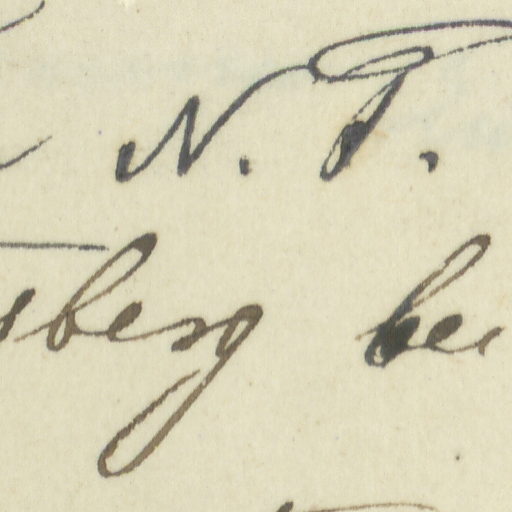 N. T.
sberg bei